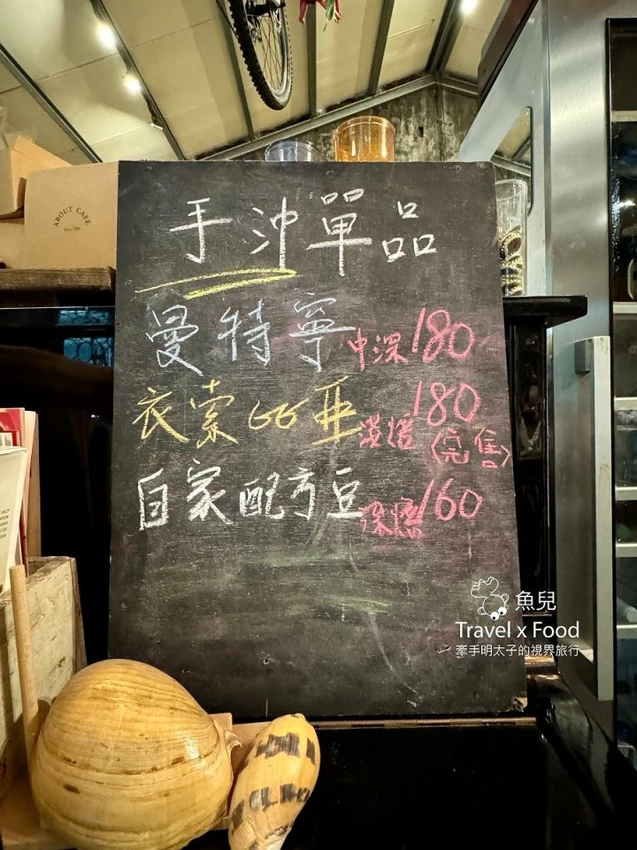 手沖單品
曼特寧 中深 180
衣索比亞 淺焙 180
(完售)
自家配方豆 深焙 160
ABOUT CAFE
魚兒
Travel x Food
牽手明太子的視界旅行